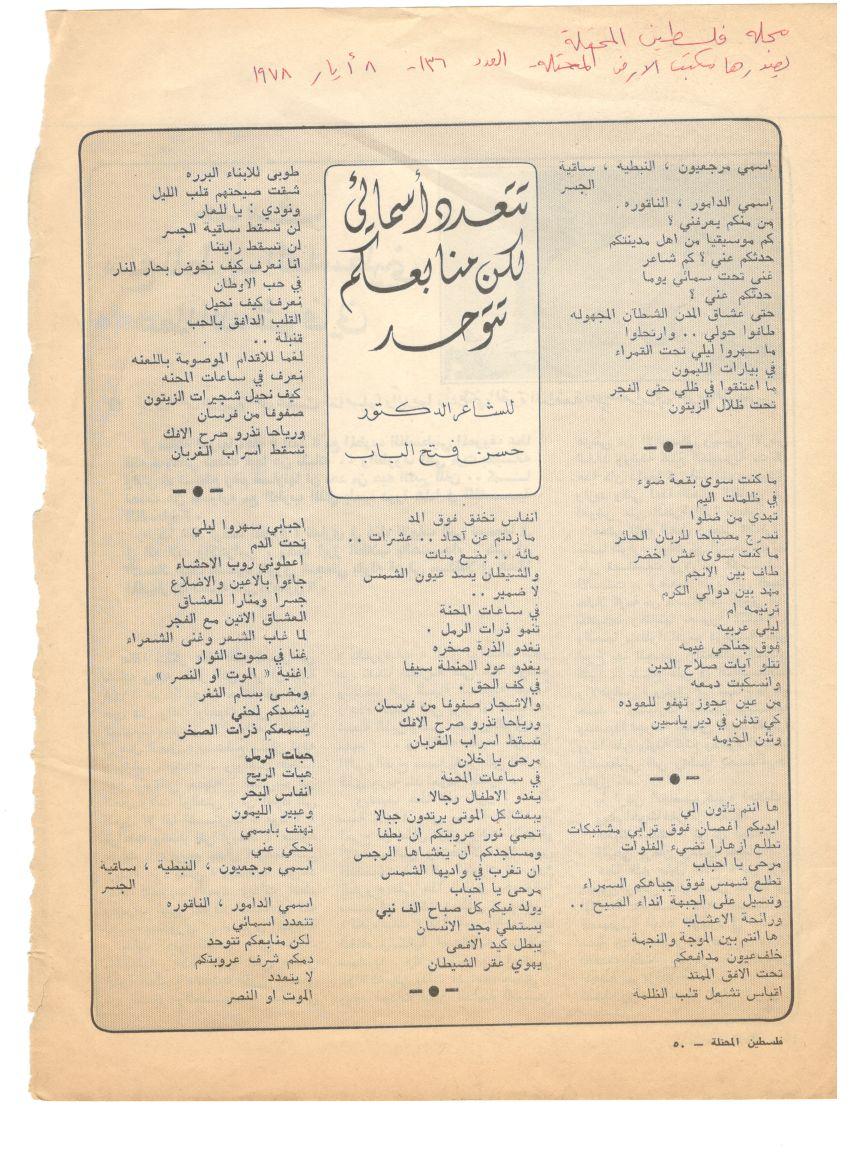 مجلة فلسطين المحتلة
يصدرها مكتب الارض المحتلة - العدد ١٣٦ - ٨ أيار ١٩٧٨
تتعدد أسمائي
لكن منابعكم
تتوحد
للشاعر الدكتور
حسن فتح الباب
إسمي مرجعيون ، النبطيه ، ساقية
الجسر
إسمي الدامور ، الناقوره
من منكم يعرفني ؟
كم موسيقيا من اهل مدينتكم
حدثكم عني ؟ كم شاعر
غنى تحت سمائي يوما
حدثكم عني ؟
حتى عشاق المدن الشطآن المجهوله
طافوا حولي .. وارتحلوا
ما سهروا ليلي تحت القمراء
في بيارات الليمون
ما اعتنقوا في ظلي حتى الفجر
تحت ظلال الزيتون
ما كنت سوى بقعة ضوء
في ظلمات اليم
تهدي من ضلوا
تسرج مصباحا للربان الحائر
ما كنت سوى عش اخضر
طاف بين الانجم
مهد بين دوالي الكرم
ترنيمه ام
ليلى عربيه
فوق جناحي غيمه
تتلو آيات صلاح الدين
وانسكبت دمعه
من عين عجوز تهفو للعوده
كي تدفن في دير ياسين
وتئن الخيمه
ها انتم تأتون الي
ايديكم اغصان فوق ترابي مشتبكات
تطلع ازهارا تضيء الفلوات
مرحى يا احباب
تطلع شمس فوق جباهكم السمراء
وتسيل على الجبهة انداء الصبح ..
ورائحة الاعشاب
ها انتم بين الموجة والنجمة
خلف عيون مدافعكم
تحت الافق الممتد
اقباس تشعل قلب الظلمه
انفاس تخفق فوق المد
ما زدتم عن آحاد .. عشرات ..
مائة .. بضع مئات
والشيطان يسد عيون الشمس
لا ضمير ..
في ساعات المحنة
تنمو ذرات الرمل .
تغدو الذرة صخره
يغدو عود الحنطة سيفا
في كف الحق .
والاشجار صفوفا من فرسان
ورياحا تذرو صرح الافك
تسقط اسراب الغربان
مرحى يا خلان
في ساعات المحنة
يغدو الاطفال رجالا .
يبعث كل الموتى يرتدون جبالا
تحمي نور عروبتكم ان يطفا
ومساجدكم ان يغشاها الرجس
ان تغرب في واديها الشمس
مرحى يا احباب
يولد فيكم كل صباح الف نبي
يستعلي مجد الانسان
يبطل كيد الافعى
يهوي عقر الشيطان
طوبى للابناء البرره
شقت صيحتهم قلب الليل
ونودي : يا للعار
لن تسقط ساقية الجسر
لن تسقط رايتنا
انا نعرف كيف نخوض بحار النار
في حب الاوطان
نعرف كيف نحيل
القلب الدافق بالحب
قنبلة ..
لغما للاقدام الموصومة باللعنه
نعرف في ساعات المحنه
كيف نحيل شجيرات الزيتون
صفوفا من فرسان
ورياحا تذرو صرح الافك
تسقط اسراب الغربان
احبابي سهروا ليلي
تحت الدم
اعطوني روب الاحشاء
جاءوا بالاعين والاضلاع
جسرا ومنارا للعشاق
العشاق الاتين مع الفجر
لما غاب الشعر وغنى الشعراء
غنا في صوت الثوار
اغنية « الموت او النصر »
ومضى بسام الثغر
ينشدكم لحني
يسمعكم ذرات الصخر
حبات الرمل
هبات الريح
انفاس البحر
وعبير الليمون
تهتف باسمي
تحكي عني
اسمي مرجعيون ، النبطية ، ساقية
الجسر
اسمي الدامور ، الناقوره
تتعدد اسمائي
لكن منابعكم تتوحد
دمكم شرف عروبتكم
لا يتعدد
الموت او النصر
فلسطين المحتلة - ٥٠